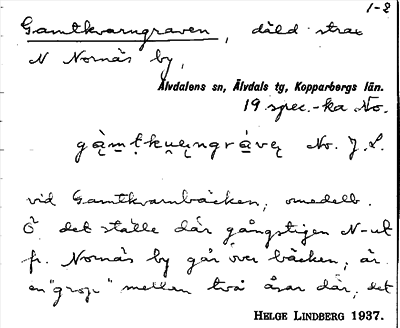 1-2
Gamtkvarngraven, däld strax
N Nornäs by,
Älvdalens sn, Älvdals tg, Kopparbergs län.
19 spec.-ka No.
No. J. L.
vid Gamtkvarnbäcken, omedelb.
Ö det ställe där gångstigen N-ut
fr. Nornäs by går över bäcken; är
en "grop" mellan två åsar där; det
HELGE LINDBERG 1937.